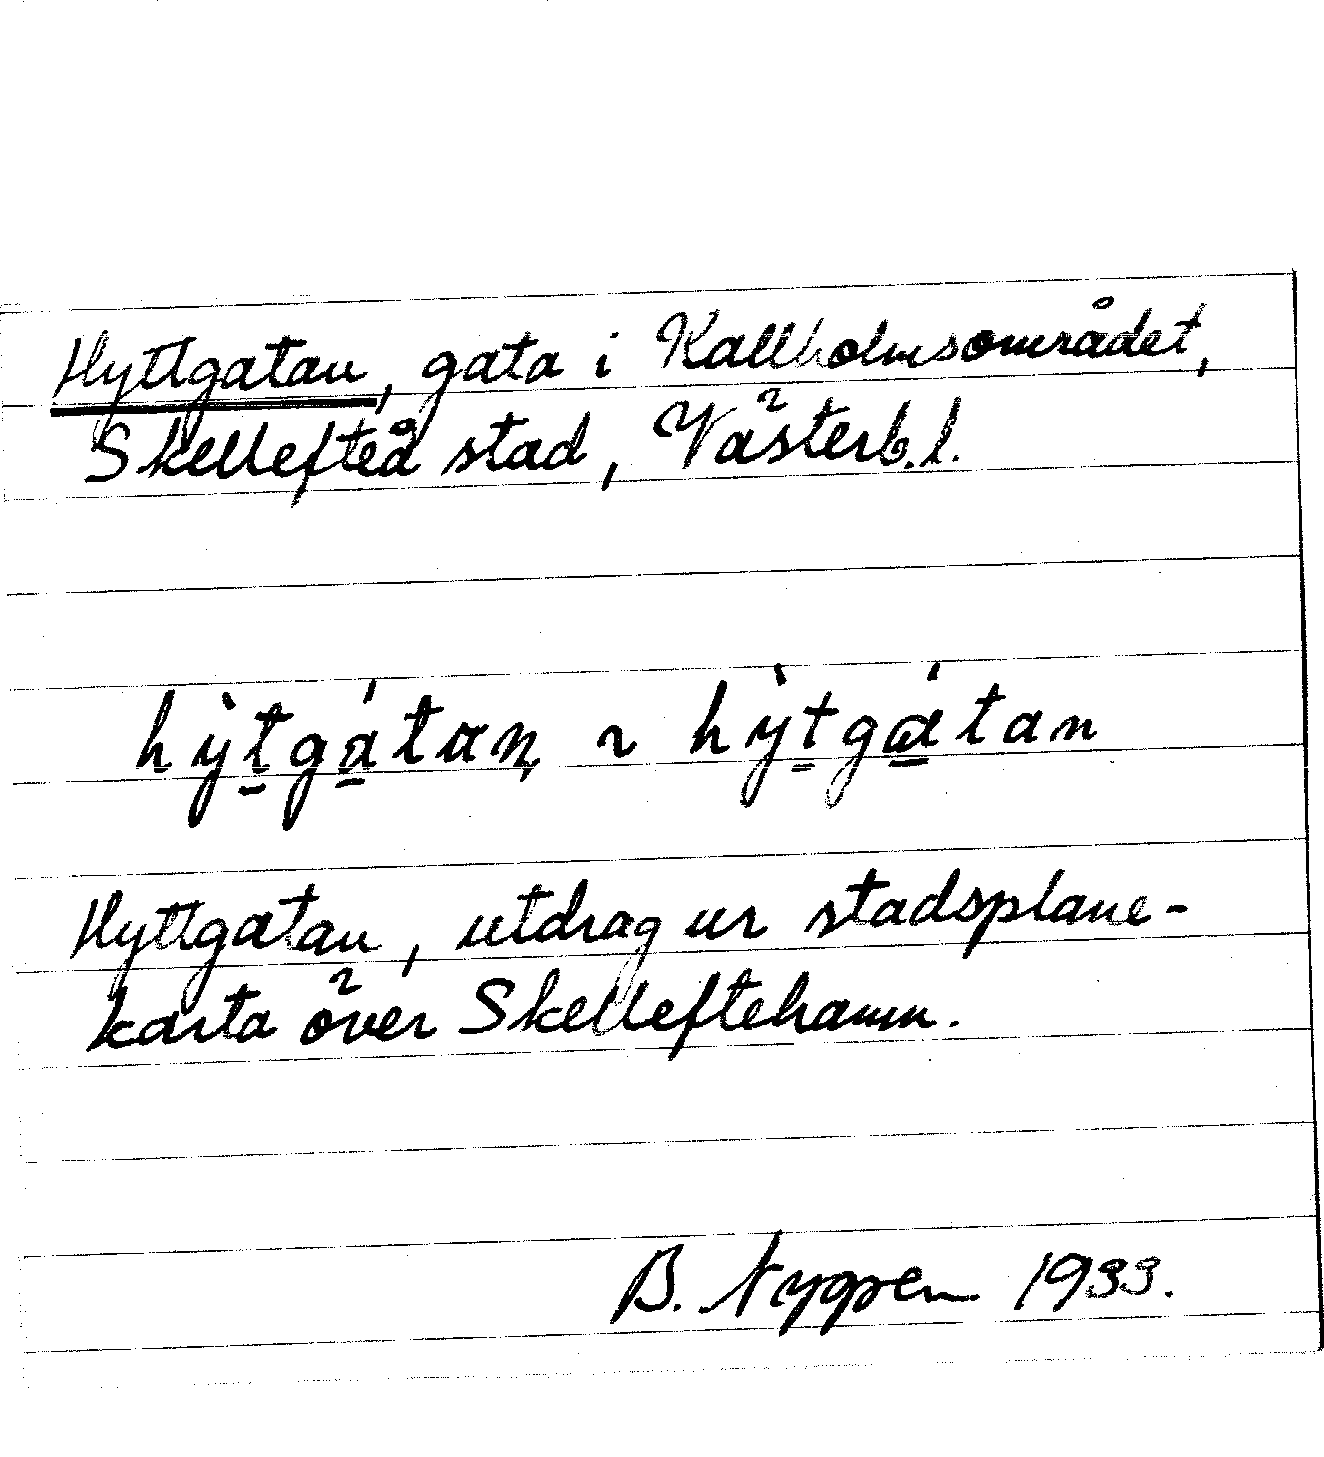 Hyttgatan, gata i Kallholmsområdet,
Skellefteå stad, Västerb. l.
hỳt̲gá̲tan, ~ hỳt̲gá̲tan
Hyttgatan, utdrag ur stadsplane-
karta över Skelleftehamn.
B. Nygren 1933.